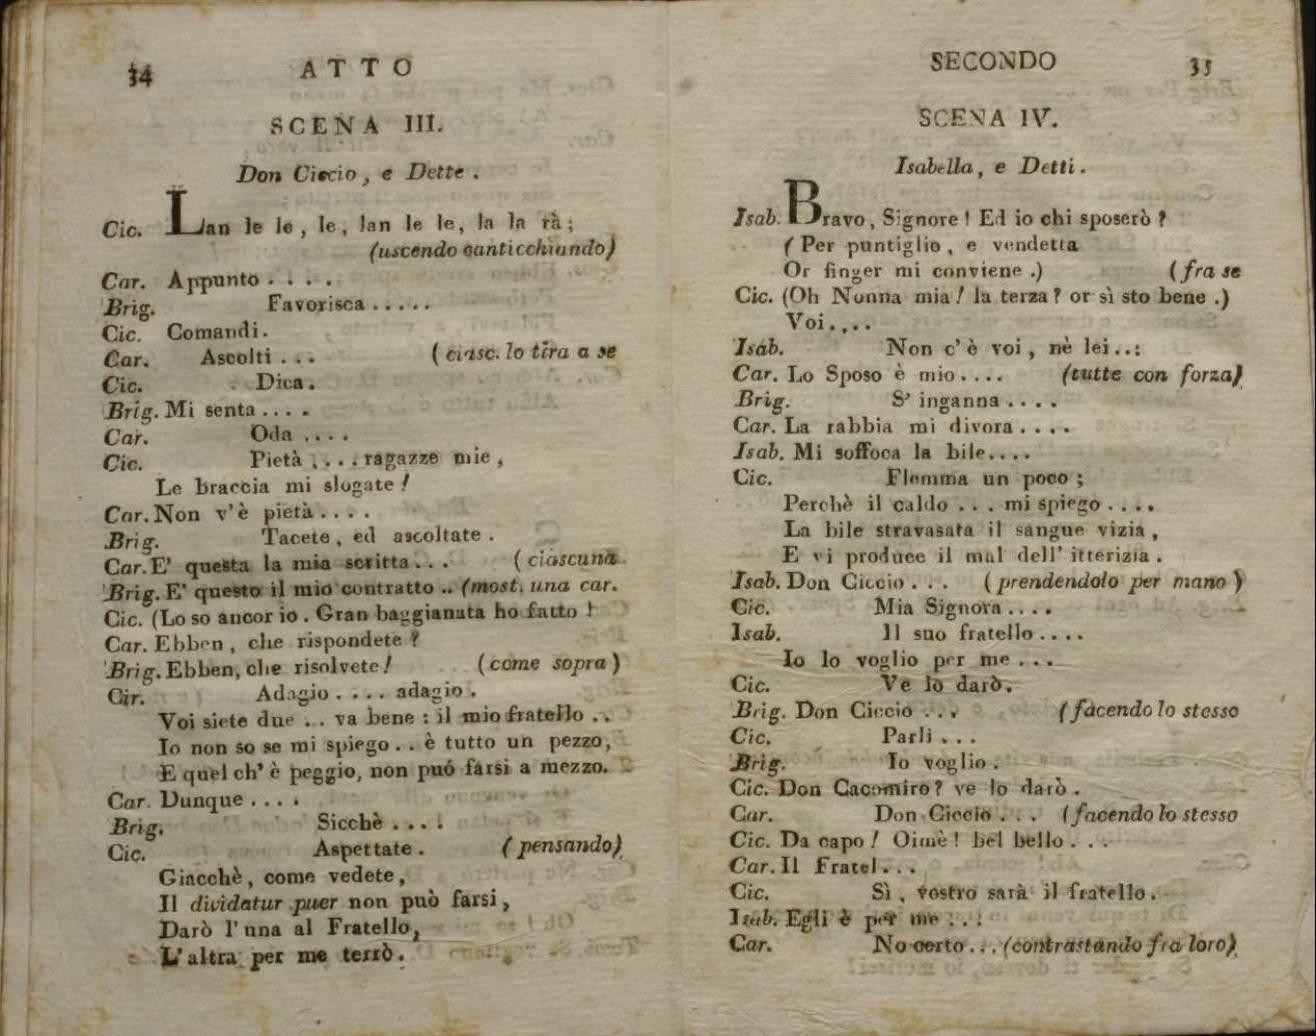 34 ATTO
SCENA III.
Don Ciccio, e Dette.
Cic. Lan le le, le, lan le le, la la rà;
(uscendo canticchiando)
Car. Appunto . . . .
Brig. Favorisca . . . . .
Cic. Comandi.
Car. Ascolti . . . (ciasc. lo tira a se
Cic. Dica.
Brig. Mi senta . . . .
Car. Oda . . . .
Cic. Pietà . . . . ragazze mie,
Le braccia mi slogate!
Car. Non v'è pietà . . . .
Brig. Tacete, ed ascoltate.
Car. E' questa la mia scritta . . . (ciascuna
Brig. E' questo il mio contratto .. (most. una car.
Cic. (Lo so ancor io. Gran baggianata ho fatto!
Car. Ebben, che rispondete?
Brig. Ebben, che risolvete! (come sopra)
Cir. Adagio . . . . adagio.
Voi siete due . . va bene: il mio fratello . .
Io non so se mi spiego . . è tutto un pezzo,
E quel ch'è peggio, non puó farsi a mezzo.
Car. Dunque . . . .
Brig. Sicchè . . . .
Cic. Aspettate. (pensando)
Giacchè, come vedete,
Il dividatur puer non può farsi,
Darò l'una al Fratello,
L'altra per me terrò.
SECONDO 35
SCENA IV.
Isabella, e Detti.
Isab. Bravo, Signore! Ed io chi sposerò?
(Per puntiglio, e vendetta
Or finger mi conviene.) (fra se
Cic. (Oh Nonna mia! la terza? or sì sto bene.)
Voi . . . .
Isab. Non c'è voi, nè lei . . :
Car. Lo Sposo è mio . . . . (tutte con forza)
Brig. S' inganna . . . .
Car. La rabbia mi divora . . . .
Isab. Mi soffoca la bile . . . .
Cic. Flemma un poco;
Perchè il caldo . . . mi spiego . . . .
La bile stravasata il sangue vizia,
E vi produce il mal dell' itterizia.
Isab. Don Ciccio . . . (prendendolo per mano)
Cic. Mia Signora . . . .
Isab. Il suo fratello . . . .
Io lo voglio per me . . .
Cic. Ve lo darò.
Brig. Don Ciccio . . . (facendo lo stesso
Cic. Parli . . .
Brig. Io voglio.
Cic. Don Cacomiro? ve lo darò.
Car. Don Ciccio . . . (facendo lo stesso
Cic. Da capo! Oimè! bel bello . . .
Car. Il Fratel . . .
Cic. Sì, vostro sarà il fratello.
Isab. Egli è per me . . .
Car. No certo . . . (contrastando fra loro)